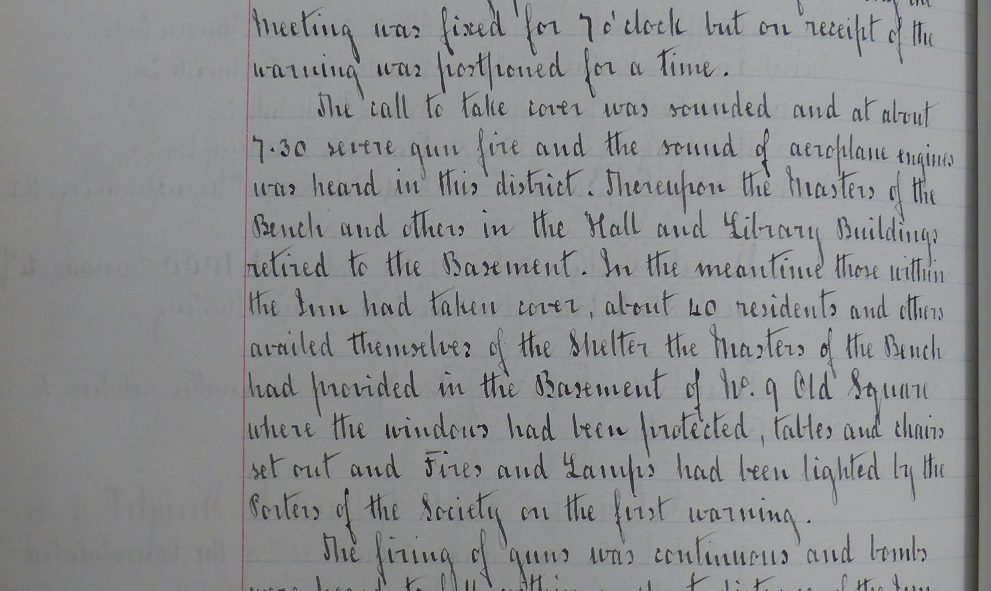 Meeting was fixed for 7 o'clock but on receipt of the
warning was postponed for a time.
The call to take cover was sounded and at about
7.30 severe gun fire and the sound of aeroplane engines
was heard in this district. Thereupon the Masters of the
Bench and others in the Hall and Library Buildings
retired to the Basement. In the meantime those within
the Inn had taken cover, about 40 residents and others
availed themselves of the Shelter the Masters of the Bench
had provided in the Basement of No. 9 Old Square
where the windows had been protected, tables and chairs
set out and Fires and Lamps had been lighted by the
Porters of the Society on the first warning.
The firing of guns was continuous and bombs
were heard to fall within distance of the Inn